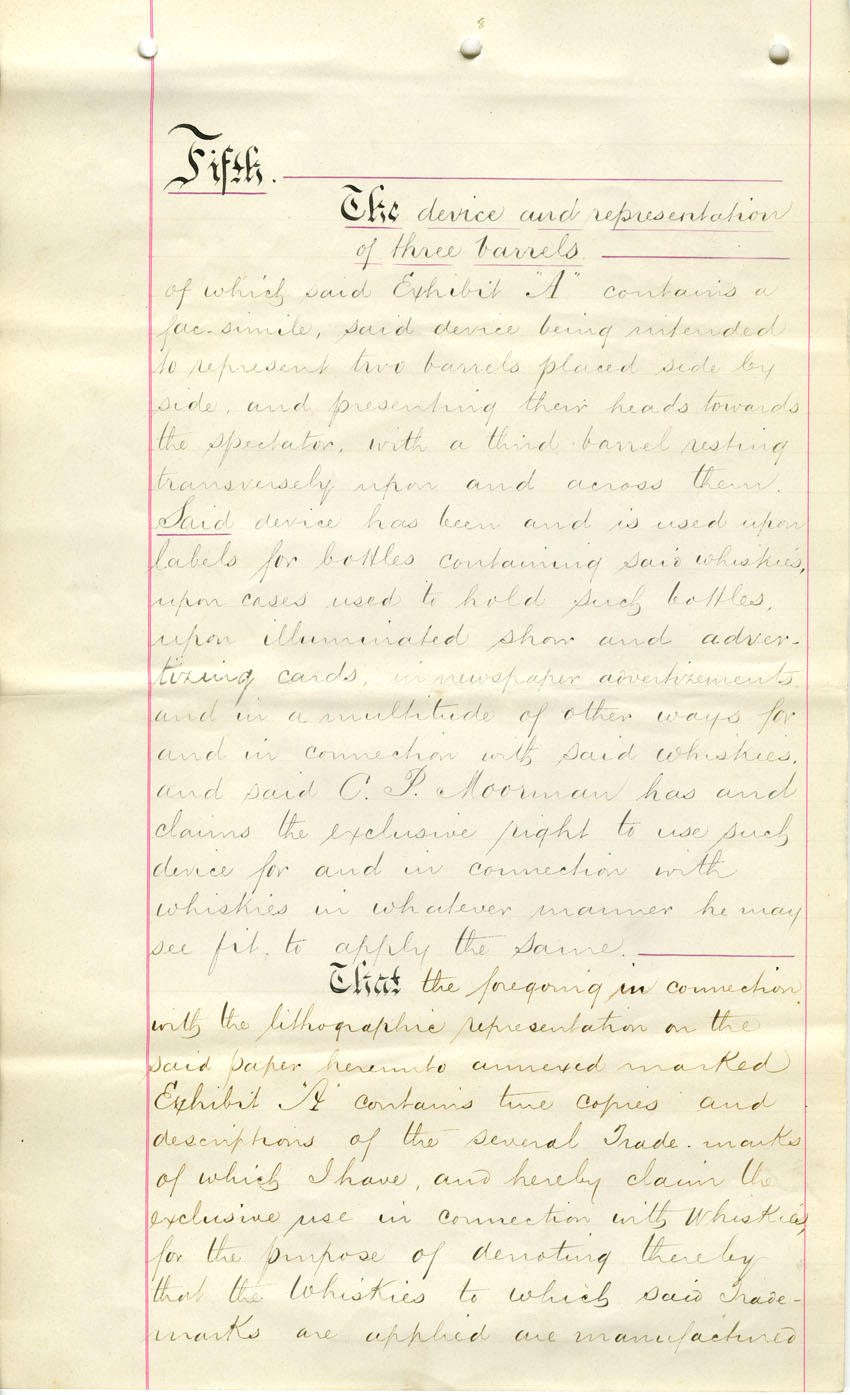 8
Fifth.
The device and representation
of three barrels
of which said Exhibit "A" contains a
fac-simile, said device being intended
to represent two barrels placed side by
side, and presenting their heads towards
the spectator, with a third barrel resting
transversely upon and across them.
Said device has been and is used upon
labels for bottles containing said whiskies,
upon cases used to hold such bottles,
upon illuminated show and adver-
tizing cards, in newspaper advertizements
and in a multitude of other ways for
and in connection with said whiskies,
and said C. P. Moorman has and
claims the exclusive right to use such
device for and in connection with
whiskies in whatever manner he may
see fit, to apply the same.
That the foregoing in connection
with the lithographic representation on the
said paper hereunto annexed marked
Exhibit "A" contains true copies and
descriptions of the several Trade-marks
of which I have, and hereby claim the
exclusive use in connection with Whiskies,
for the purpose of denoting thereby
that the Whiskies to which said Trade-
marks are applied are manufactured